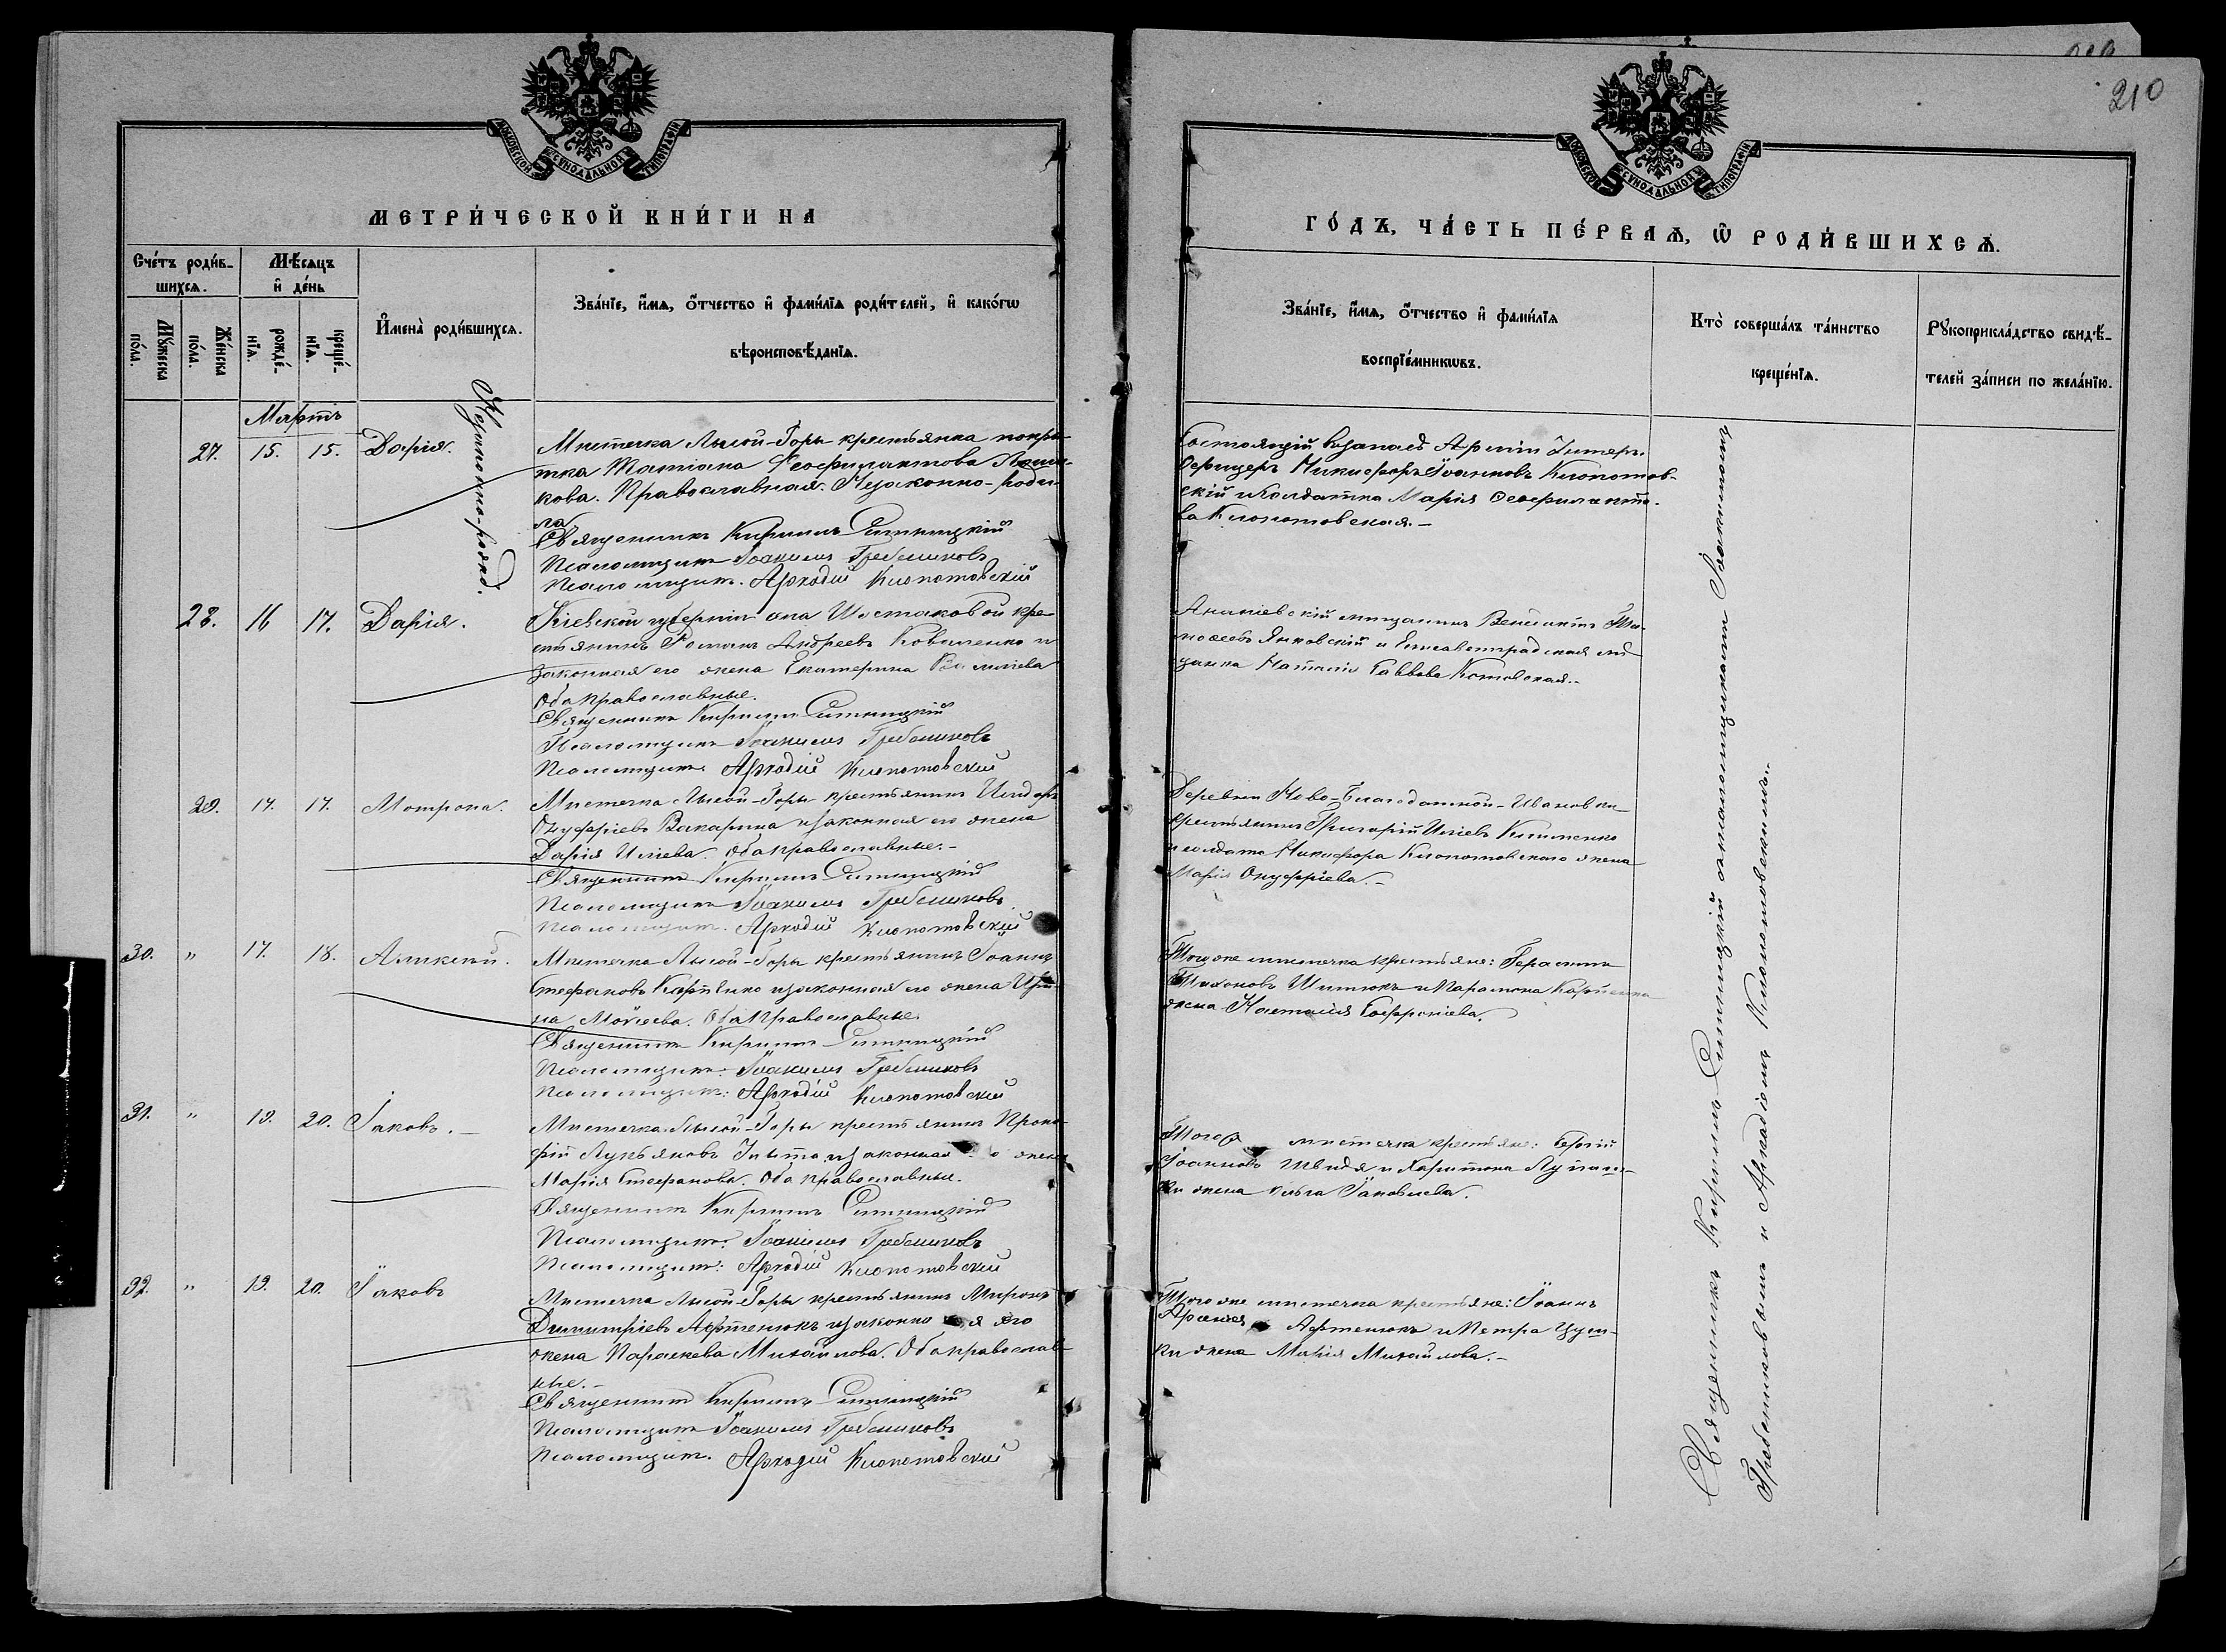 210
МОСКОВСКОЙ СѴНОДАЛЬНОЙ ТИПОГРАФІИ
МОСКОВСКОЙ СѴНОДАЛЬНОЙ ТИПОГРАФІИ
МЕТРИ́ЧЕСКОЙ КНИ́ГИ НА
ГО́ДЪ, ЧА́СТЬ ПЕ́РВАѦ, Ѽ РОДИ́ВШИХСѦ.
Сче́тъ роди́в-
шихсѧ.
Мѣ́сѧцъ
и҆ де́нь
Мꙋ́жеска
по́ла.
Же́нска
по́ла.
рожде́-
нїѧ.
креще́-
нїѧ.
И҆мена̀ роди́вшихсѧ.
Зва́нїе, и҆́мѧ, ѻ҆́тчество и҆ фами́лїѧ роди́телей, и҆ како́гѡ
вѣроисповѣ́данїѧ.
Зва́нїе, и҆́мѧ, ѻ҆́тчество и҆ фами́лїѧ
воспрїе́мникѡвъ.
Кто̀ соверша́лъ та́инство
креще́нїѧ.
Рꙋкоприкла́дство свидѣ́-
телей за́писи по жела́нїю.
Мартъ
27. 15. 15. Дарія.
Незаконно-рожд.
Мѣстечка Лысой-Горы крестьянка покры-
тка Татіана Ѳеофилактова
кова. Православная. Незаконно-роди-
ла
Священникъ Кириллъ Ситницкій
Псаломщикъ Іоакимъ Гребенниковъ
Псаломщикъ. Аркадій Клопотовскій
Состоящій въ запасѣ Арміи Унтеръ-
Офицеръ Никифоръ Іоанновъ Клопотов-
скій и солдатка Марія Ѳеофилакто-
ва Клопотовская.-
28. 16 17. Дарія.
Кіевской губерніи села Шестаковой кре-
стьянинъ Романъ Андреевъ Коваленко и
законная его жена Екатерина Василіева
Оба православные.
Священникъ Кириллъ Ситницкій
Псаломщикъ Іоакимъ Гребенниковъ
Псаломщикъ Аркадій Клопотовскій
Ананіевскій мѣщанинъ Викентій Ти-
моѳеевъ Янковскій и Елисаветградская мѣ-
щанка Наталія Саввова Котовская.-
29. 17. 17. Матрона.
Мѣстечка Лысой-Горы крестьянинъ Исидоръ
Онуфріевъ Вакарина и законная его жена
Дарія Иліева. Оба православные.-
Священникъ Кириллъ Ситницкій
Псаломщикъ Іоакимъ Гребенниковъ
Псаломщикъ. Аркадій Клопотовскій
Деревни Ново-Благодатной-Ивановки
крестьянинъ Григорій Иліевъ Клименко
и солдата Никифора Клопотовскаго жена
Марія Онуфріева.-
30. " 17. 18. Алексѣй.
Мѣстечка Лысой-Горы крестьянинъ Іоаннъ
Стефановъ и законная его жена Ири-
на Мойсеева. Оба Православные.
Священникъ Кириллъ Ситницкій
Псаломщикъ: Іоакимъ Гребенниковъ
Псаломщикъ: Аркадій Клопотовскій
Того же мѣстечка крестьяне: Герасимъ
Тихоновъ и Парамона
жена Наталія Софроніева.
31. " 19. 20. Іаковъ.-
Мѣстечка Лысой-Горы крестьянинъ Проко-
фій Лукьяновъ и законная его жена
Марія Стефанова. Оба православные.
Священникъ Кириллъ Ситницкій
Псаломщикъ: Іоакимъ Гребенниковъ
Псаломщикъ: Аркадій Клопотовскій
Того мѣстечка крестьяне: Сергій
Іоанновъ Швидя и Харитона
жена Іаковлева.
32. " 19. 20. Іаковъ
Мѣстечка Лысой-Горы крестьянинъ Миронъ
Димитріевъ Афтенюкъ и законная его
жена Параскева Михайлова. Оба православ-
ные.-
Священникъ Кириллъ Ситницкій
Псаломщикъ Іоакимъ Гребенниковъ
Псаломщикъ. Аркадій Клопотовскій
Того же мѣстечка крестьяне: Іоаннъ
Афтенюкъ и Петра
жена Марія Михайлова.-
Священникъ Кириллъ Ситницкій съ псаломщиками Іоакимомъ
Гребенниковымъ и Аркадіемъ Клопотовскимъ.